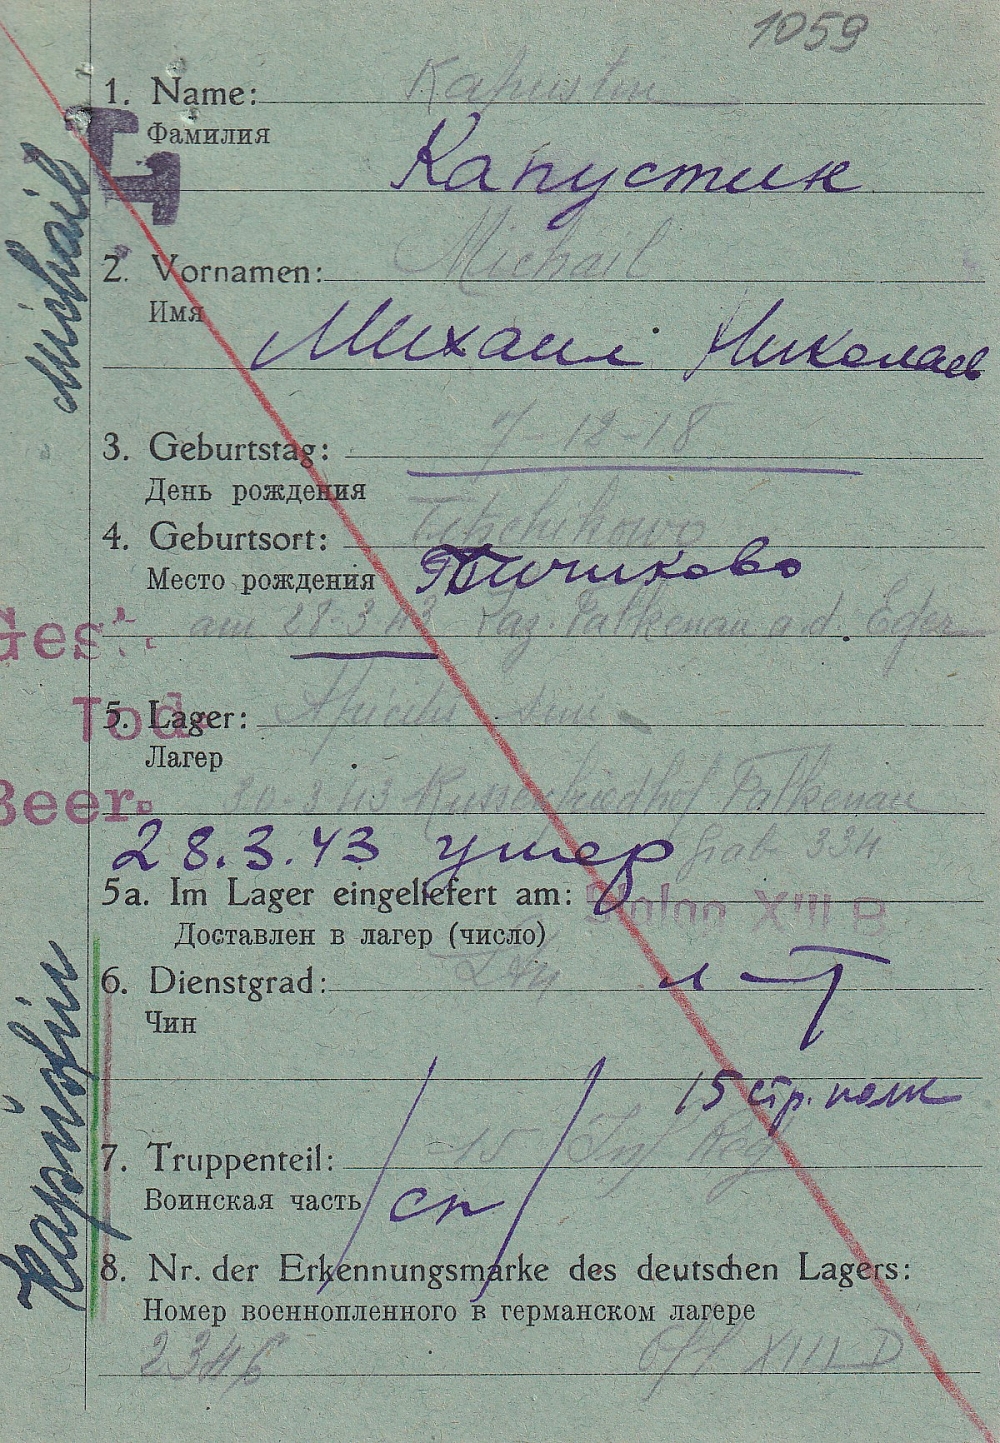 1059
1. Name: Kapustin
Фамилия
Капустин
2. Vornamen: Michail
Имя
Михаил Николаев
3. Geburtstag: 7-12-18
День рождения
4. Geburtsort:
Место рождения
am 28-3 43 Laz. Falkenau a.d. Eger
Gest.
Tod
5. Lager:
Лагер
Beer.
30-3 43 Russenfriedhof Falkenau
28.3.43 умер Grab 334
5a. Im Lager eingeliefert am: Stalag XIII B
Доставлен в лагер (число)
6. Dienstgrad: л-т
Чин
15 стр. полк
7. Truppenteil: 15 Inf Reg
Воинская часть сп
8. Nr. der Erkennungsmarke des deutschen Lagers:
Номер военнопленного в германском лагере
2346 Off XIII D
Michail
Kapustin